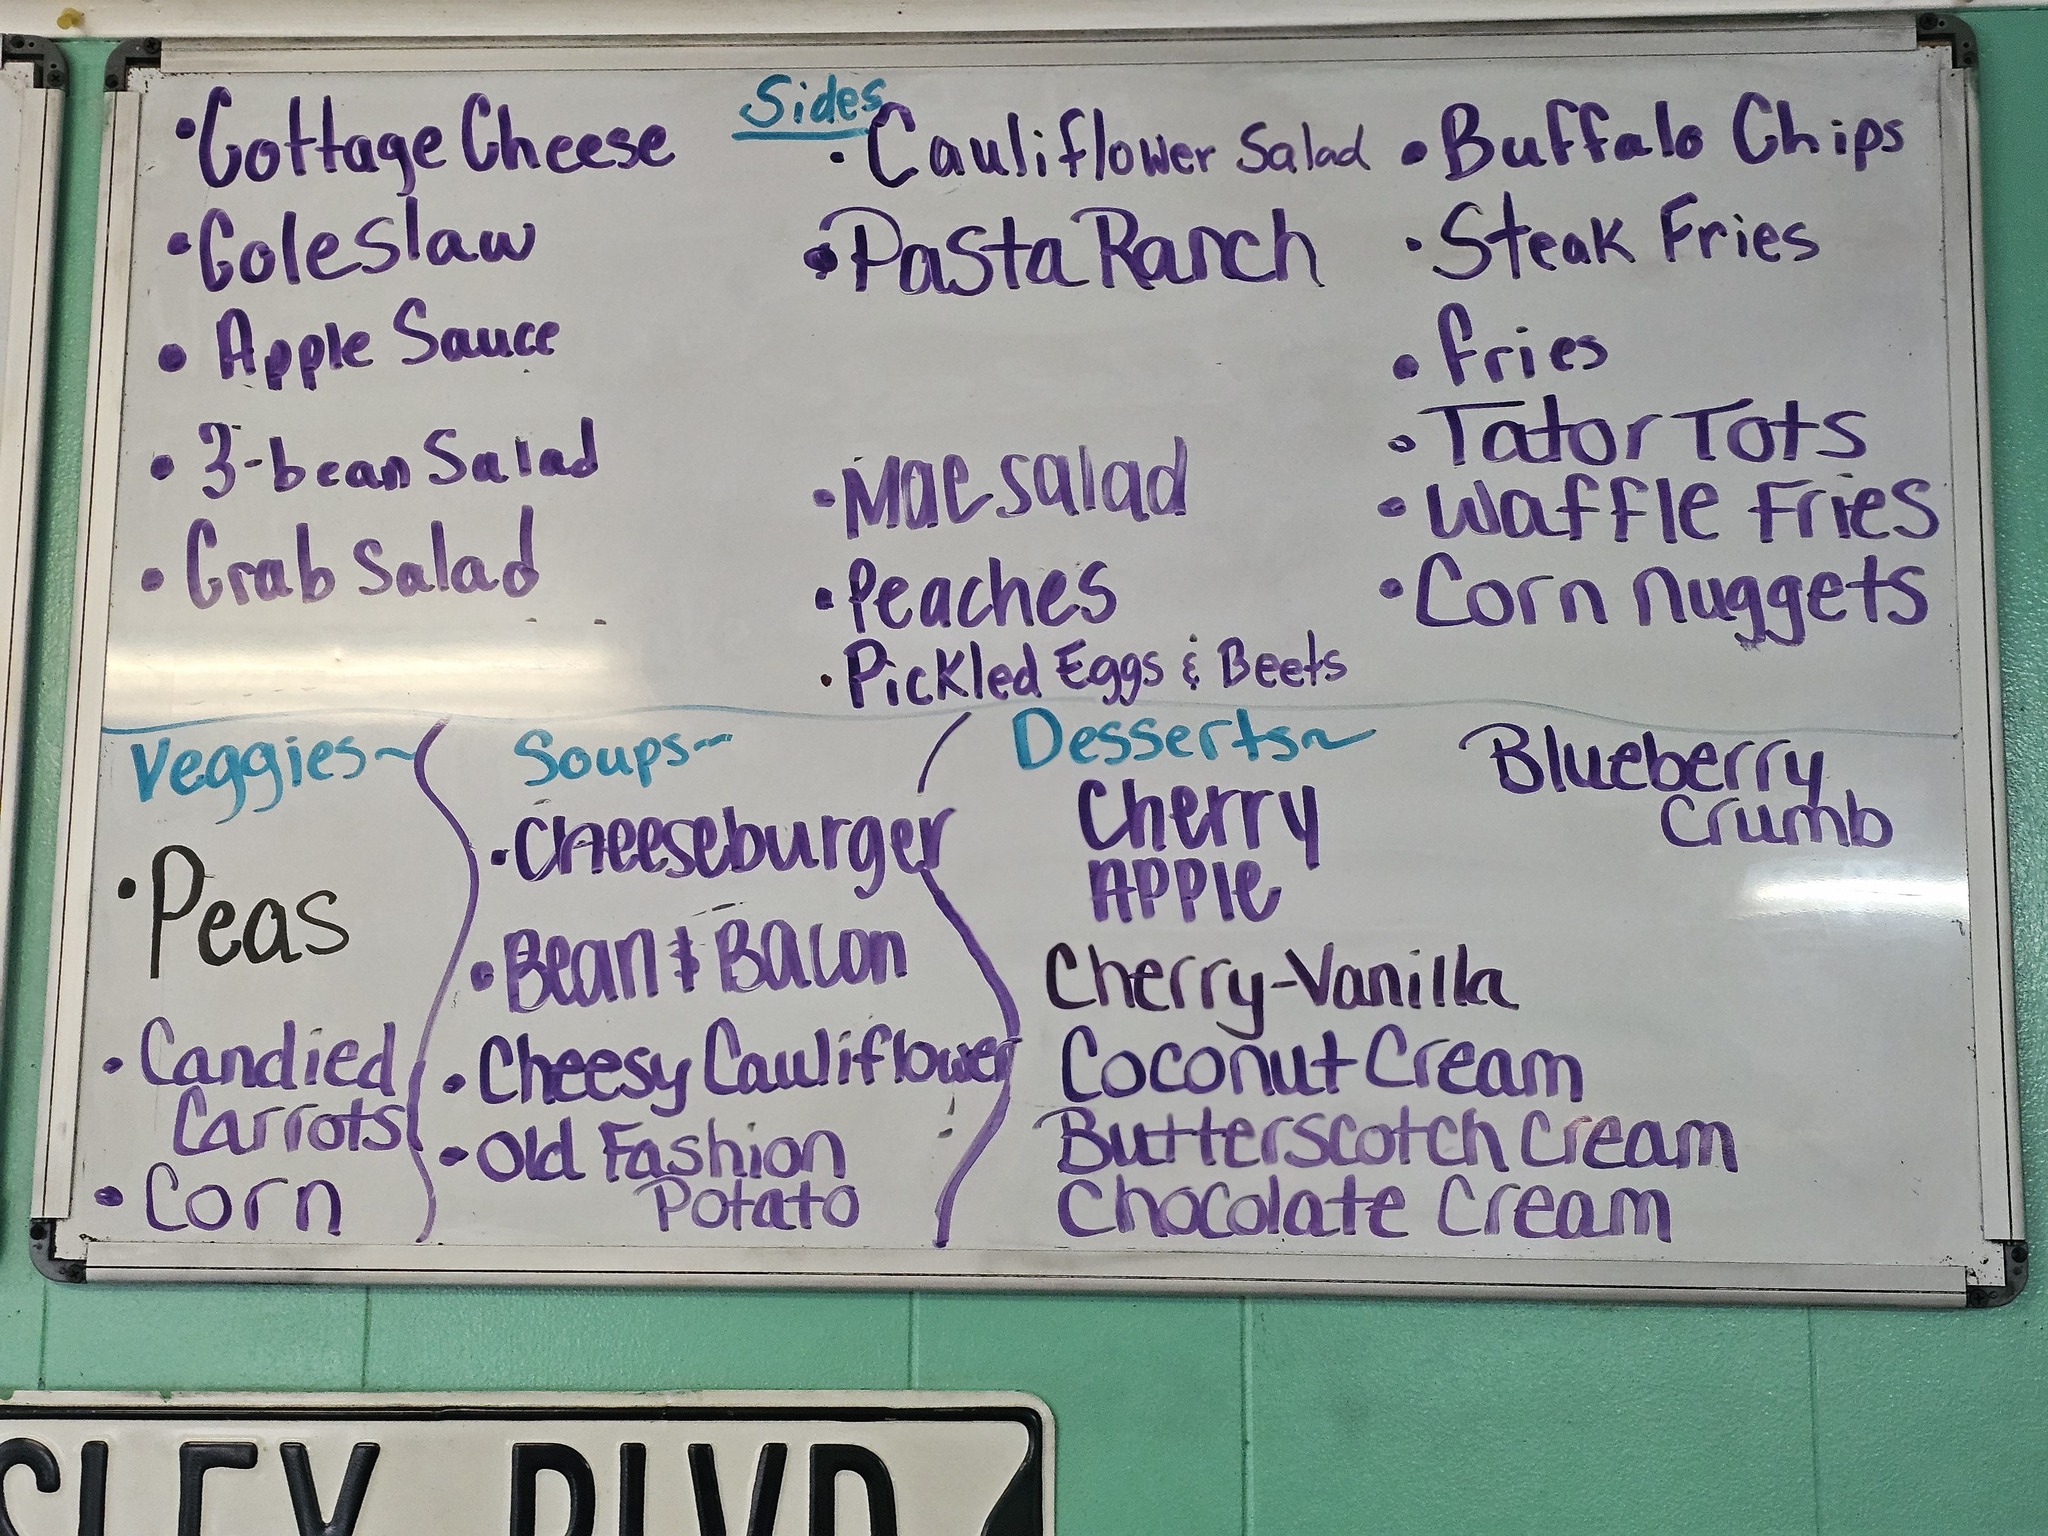 Sides
• Cottage Cheese
• Coleslaw
• Apple Sauce
• 3-bean Salad
• Crab Salad
• Cauliflower Salad
• Pasta Ranch
• Mac Salad
• Peaches
• Pickled Eggs & Beets
• Buffalo Chips
• Steak Fries
• fries
• Tator Tots
• Waffle Fries
• Corn nuggets
Veggies~
• Peas
• Candied
Carrots
• Corn
Soups~
• Cheeseburger
• Bean & Bacon
• Cheesy Cauliflower
• Old Fashion
Potato
Desserts~
Cherry
Apple
Cherry-Vanilla
Coconut Cream
Butterscotch Cream
Chocolate Cream
Blueberry
Crumb
SLEY BLVD